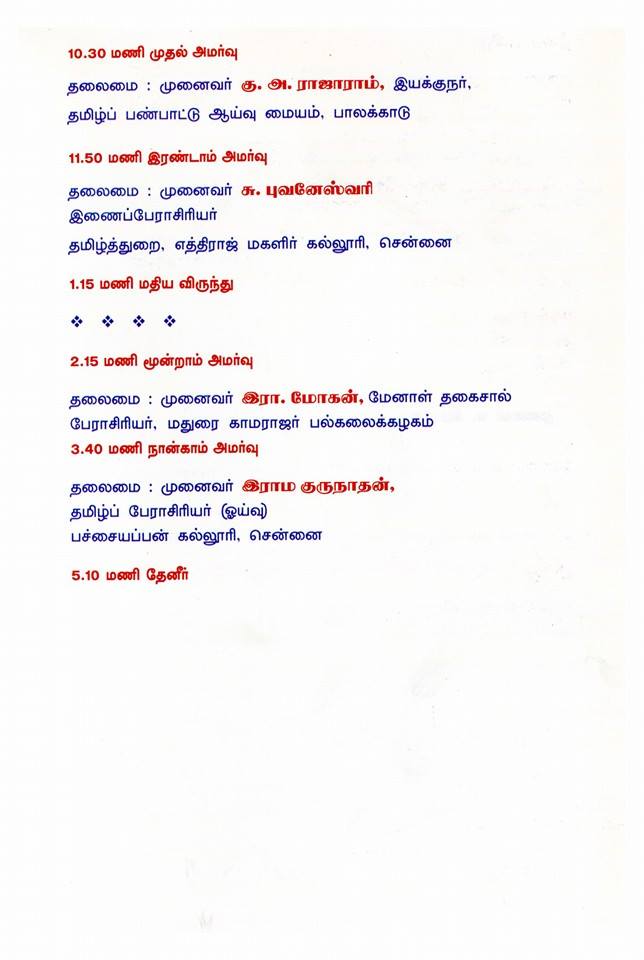 10.30 மணி முதல் அமர்வு
தலைமை : முனைவர் கு. அ. ராஜாராம், இயக்குநர்,
தமிழ்ப் பண்பாட்டு ஆய்வு மையம், பாலக்காடு
11.50 மணி இரண்டாம் அமர்வு
தலைமை : முனைவர் சு. புவனேஸ்வரி
இணைப்பேராசிரியர்
தமிழ்த்துறை, எத்திராஜ் மகளிர் கல்லூரி, சென்னை
1.15 மணி மதிய விருந்து
❖ ❖ ❖ ❖
2.15 மணி மூன்றாம் அமர்வு
தலைமை : முனைவர் இரா. மோகன், மேனாள் தகைசால்
பேராசிரியர், மதுரை காமராஜர் பல்கலைக்கழகம்
3.40 மணி நான்காம் அமர்வு
தலைமை : முனைவர் இராம குருநாதன்,
தமிழ்ப் பேராசிரியர் (ஓய்வு)
பச்சையப்பன் கல்லூரி, சென்னை
5.10 மணி தேனீர்